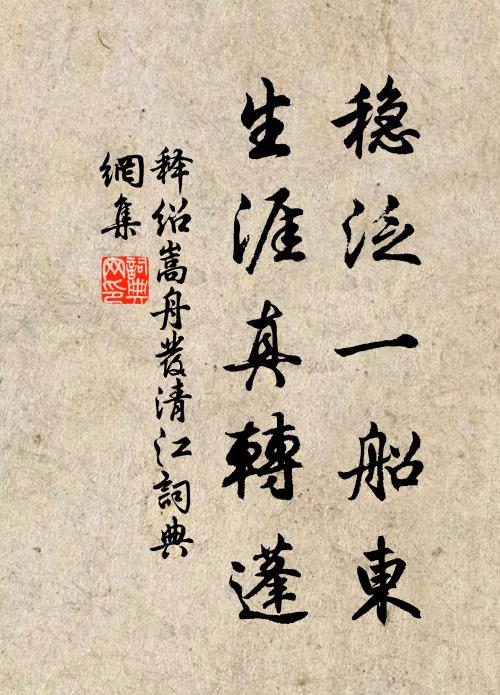 穩泛一船東
生涯真轉蓬
释紹嵩舟發清江詞典
網集
詞典網印